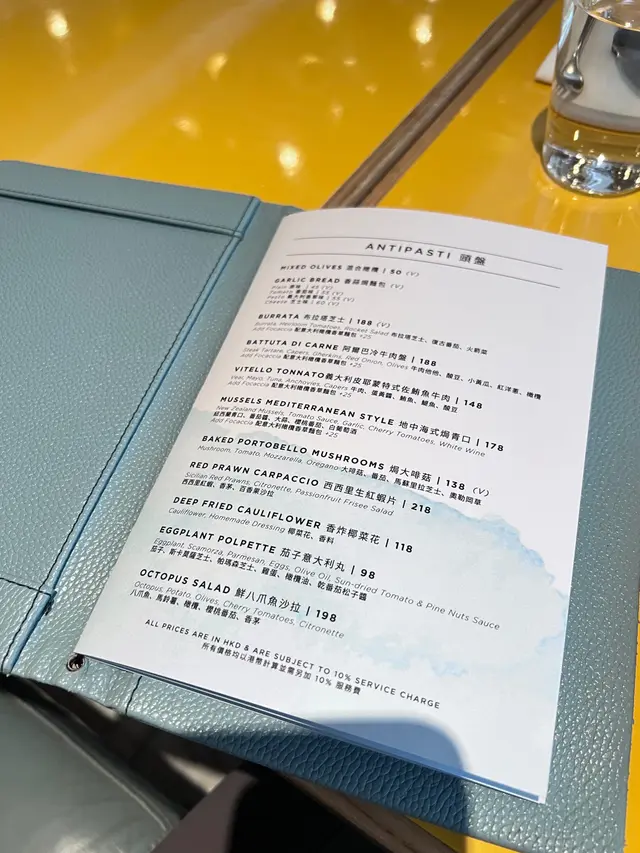 ANTIPASTI 頭盤
MIXED OLIVES 混合橄欖 | 50 (V)
GARLIC BREAD 香蒜焗麵包 (V)
Plain 原味 | 45 (V)
Tomato 番茄味 | 55 (V)
Pesto 意大利青草味 | 55 (V)
Cheese 芝士味 | 60 (V)
BURRATA 布拉塔芝士 | 188 (V)
Burrata, Heirloom Tomatoes, Rocket Salad 布拉塔芝士、復古番茄、火箭菜
Add Focaccia 配意大利橄欖香草麵包 +25
BATTUTA DI CARNE 阿爾巴冷牛肉盤 | 188
Steak Tartare, Capers, Gherkins, Red Onion, Olives 牛肉他他、酸豆、小黃瓜、紅洋蔥、橄欖
Add Focaccia 配意大利橄欖香草麵包 +25
VITELLO TONNATO 義大利皮耶蒙特式佐鮪魚牛肉 | 148
Veal, Mayo, Tuna, Anchovies, Capers 牛肉、蛋黃醬、鮪魚、鯷魚、酸豆
Add Focaccia 配意大利橄欖香草麵包 +25
MUSSELS MEDITERRANEAN STYLE 地中海式焗青口 | 178
New Zealand Mussels, Tomato Sauce, Garlic, Cherry Tomatoes, White Wine
紐西蘭青口、番茄醬、大蒜、櫻桃番茄、白葡萄酒
Add Focaccia 配意大利橄欖香草麵包 +25
BAKED PORTOBELLO MUSHROOMS 焗大啡菇 | 138 (V)
Mushroom, Tomato, Mozzarella, Oregano 大啡菇、番茄、馬蘇里拉芝士、奧勒岡草
RED PRAWN CARPACCIO 西西里生紅蝦片 | 218
Sicilian Red Prawns, Citronette, Passionfruit Frisee Salad
西西里紅蝦、香茅、百香果沙拉
DEEP FRIED CAULIFLOWER 香炸椰菜花 | 118
Cauliflower, Homemade Dressing 椰菜花、香料
EGGPLANT POLPETTE 茄子意大利丸 | 98
Eggplant, Scamorza, Parmesan, Eggs, Olive Oil, Sun-dried Tomato & Pine Nuts Sauce
茄子、斯卡莫薩芝士、帕瑪森芝士、雞蛋、橄欖油、乾番茄松子醬
OCTOPUS SALAD 鮮八爪魚沙拉 | 198
Octopus, Potato, Olives, Cherry Tomatoes, Citronette
八爪魚、馬鈴薯、橄欖、櫻桃番茄、香茅
ALL PRICES ARE IN HKD & ARE SUBJECT TO 10% SERVICE CHARGE
所有價格均以港幣計算並需另加 10% 服務費